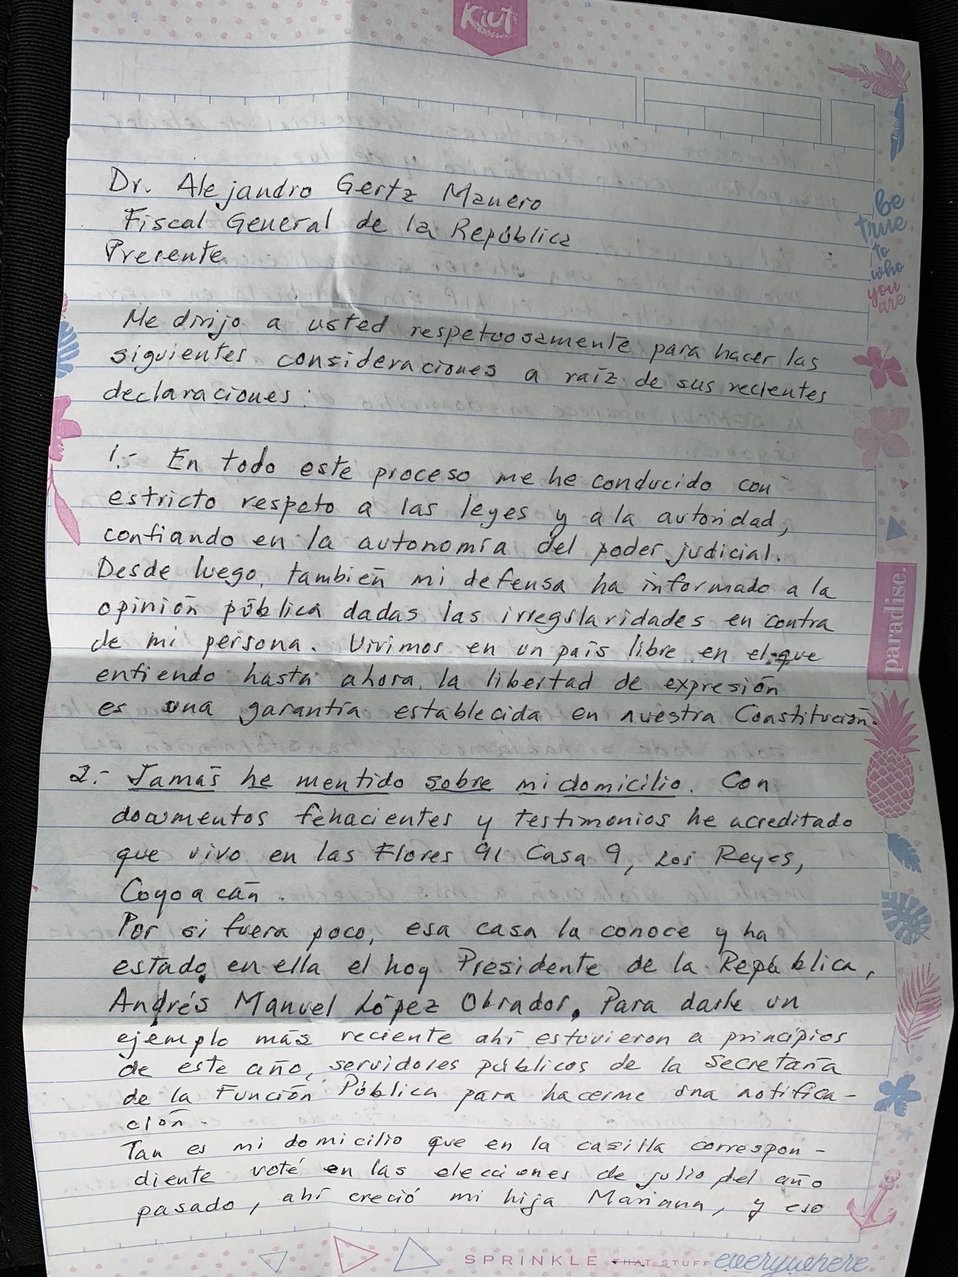 Kiut
Dr. Alejandro Gertz Manero
Fiscal General de la República
Presente
Me dirijo a usted respetuosamente para hacer las
siguientes consideraciones a raíz de sus recientes
declaraciones:
1.- En todo este proceso me he conducido con
estricto respeto a las leyes y a la autoridad,
confiando en la autonomía del poder judicial.
Desde luego, también mi defensa ha informado a la
opinión pública dadas las irregularidades en contra
de mi persona. Vivimos en un país libre en el que
entiendo hasta ahora la libertad de expresión
es una garantía establecida en nuestra Constitución.
2.- Jamás he mentido sobre mi domicilio. Con
documentos fehacientes y testimonios he acreditado
que vivo en las Flores 91 Casa 9, Los Reyes,
Coyoacán.
Por si fuera poco, esa casa la conoce y ha
estado en ella el hoy Presidente de la República,
Andrés Manuel López Obrador. Para darle un
ejemplo más reciente ahí estuvieron a principios
de este año, servidores públicos de la Secretaría
de la Función Pública para hacerme una notifica-
ción.
Tan es mi domicilio que en la casilla correspon-
diente voté en las elecciones de julio del año
pasado, ahí creció mi hija Mariana, y eso
be
true
to
who
you
are
paradise.
SPRINKLE THAT STUFF everywhere